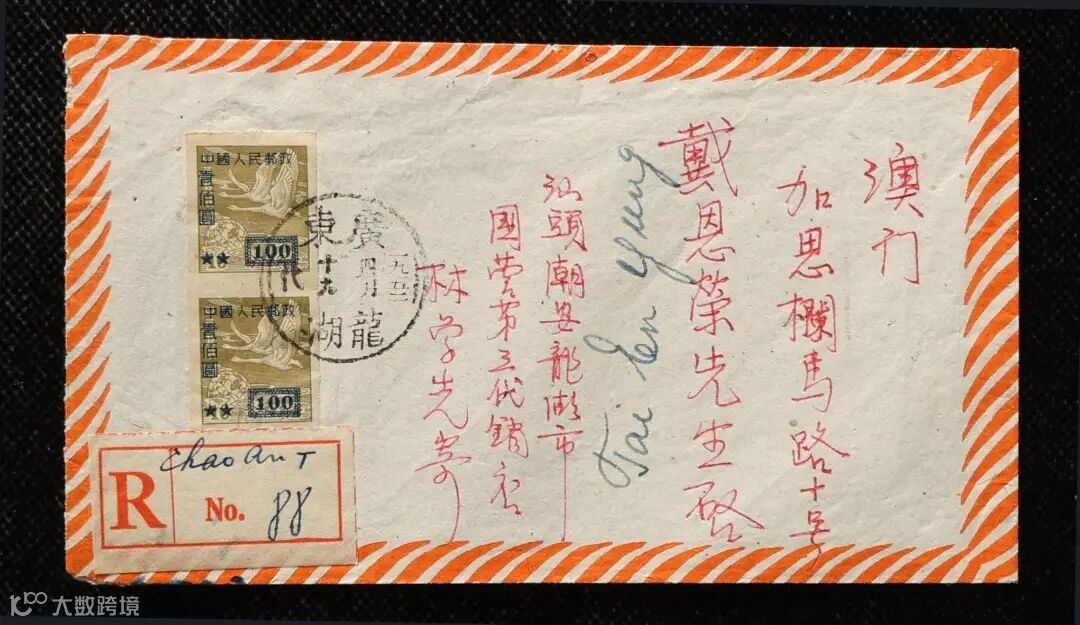 澳门
加思欄馬路十号
戴恩荣先生啓
Tai En Yung
汕頭潮安龍湖市
國营第三代銷店
林学先寄
中國人民郵政
壹佰圓
100
中國人民郵政
壹佰圓
100
廣東
一九五三
四月
十九
龍湖
代
Chao An T
R
No. 88
大数跨境